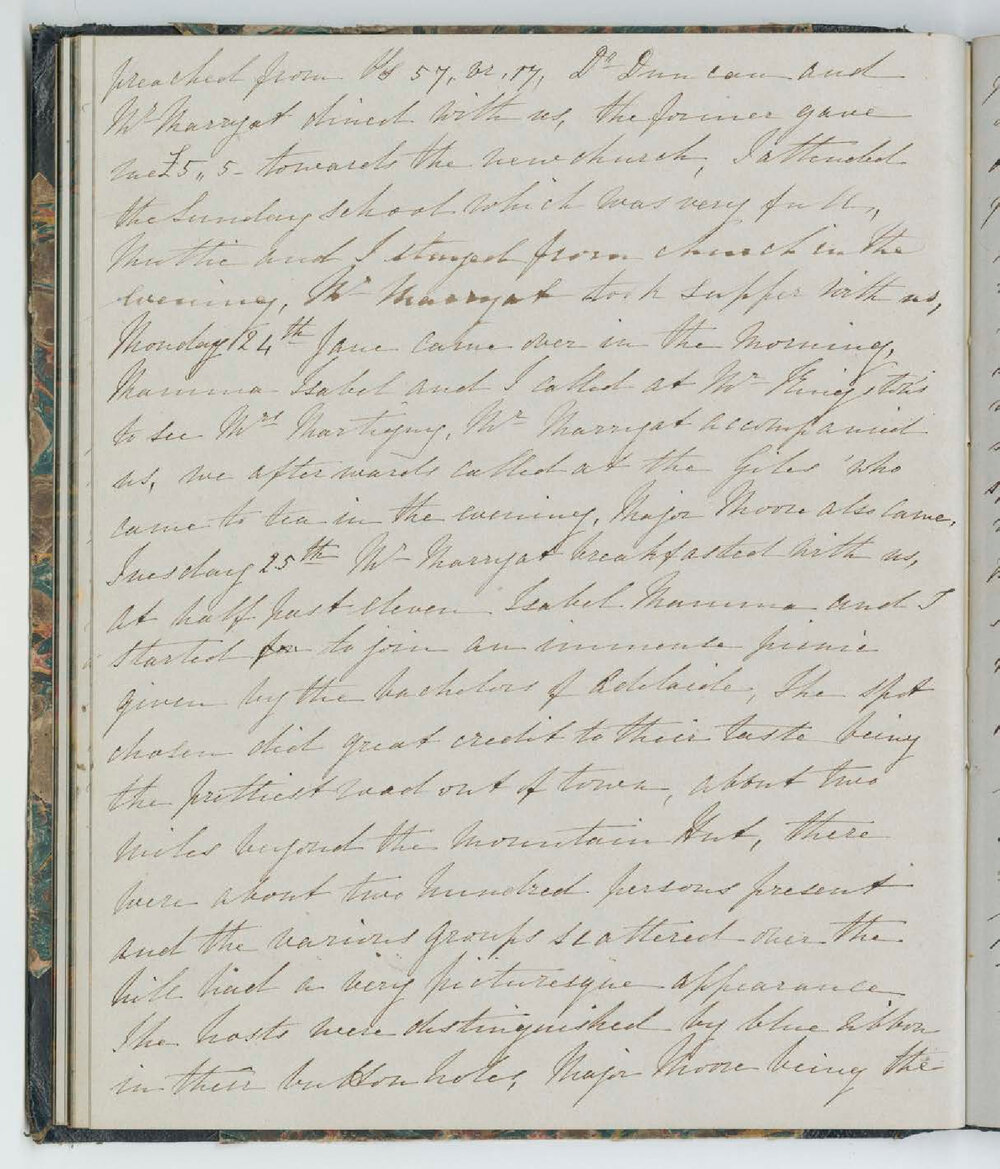 preached from Ps 57, vr, 17, Dr Duncan and
Mr Marryat dined with us, the former gave
me £5,, 5 - towards the new church, I attended
the Sunday school which was very full,
and I stayed from church in the
evening, Mr Marryat took supper with us,
Monday 24th Jane came over in the morning,
Mamma Isabel and I called at Mr Kingston's
to see Mrs Martigny, Mr Marryat accompanied
us, we afterwards called at the Giles' who
came to tea in the evening, Major Moore also came,
Tuesday 25th Mr Marryat breakfasted with us,
at half past eleven Isabel Mamma and I
started for to join an immense picnic
given by the bachelors of Adelaide, The spot
chosen did great credit to their taste being
the prettiest road out of town, about two
miles beyond the Mountain Hut, there
were about two hundred persons present
and the various groups scattered over the
hill had a very picturesque appearance
The hosts were distinguished by blue ribbon
in their button holes, Major Moore being the